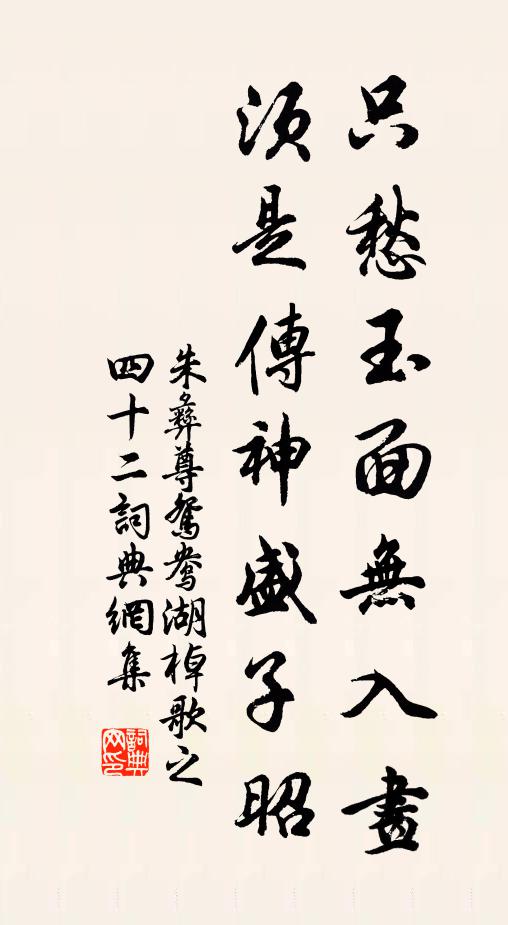 只愁玉面無入畫
須是傳神盛子昭
朱彝尊鴛鴦湖棹歌之
四十二詞典網集
詞典网印